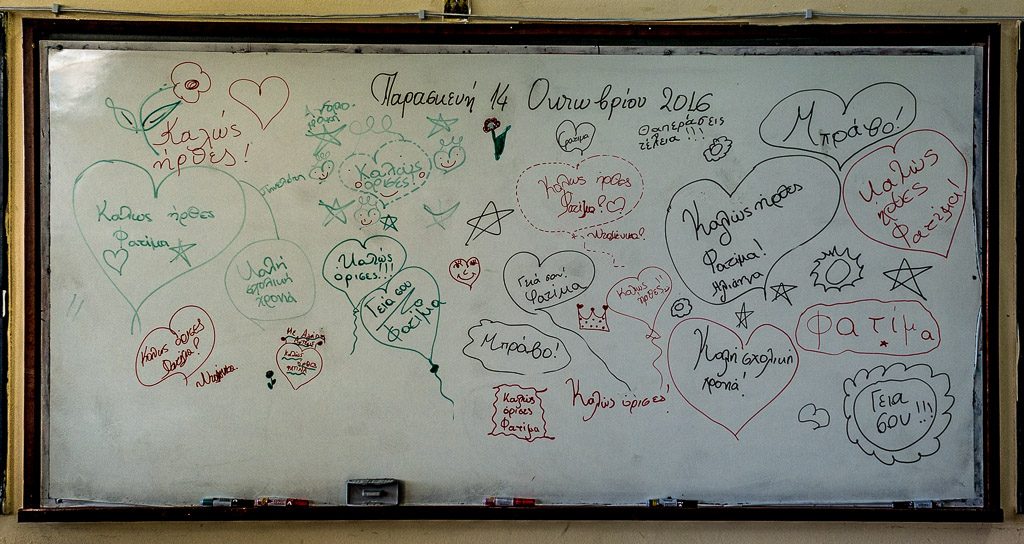 Παρασκευή 14 Οκτωβρίου 2016
Καλώς
ήρθες!
Καλώς
όρισες!
Φατίμα
Θα περάσεις
τέλεια!!!
Μπράβο!
Καλώς ήρθες
Φατίμα
Καλή
σχολική
χρονιά
Καλώς
όρισες!!!
Γεια σου
Φατίμα
Καλώς ήρθες
Φατίμα!
Γειά σου!
Φατίμα
Καλώς
ήρθες!
Καλώς ήρθες
Φατίμα!
Καλώς
ήρθες
Φατίμα!
Καλώς όρισες
Φατίμα!
Μπράβο!
Καλή σχολική
χρονιά!
Φατίμα
Καλώς
όρισες
Φατίμα
Καλώς όρισες!
Γεια
σου!!!